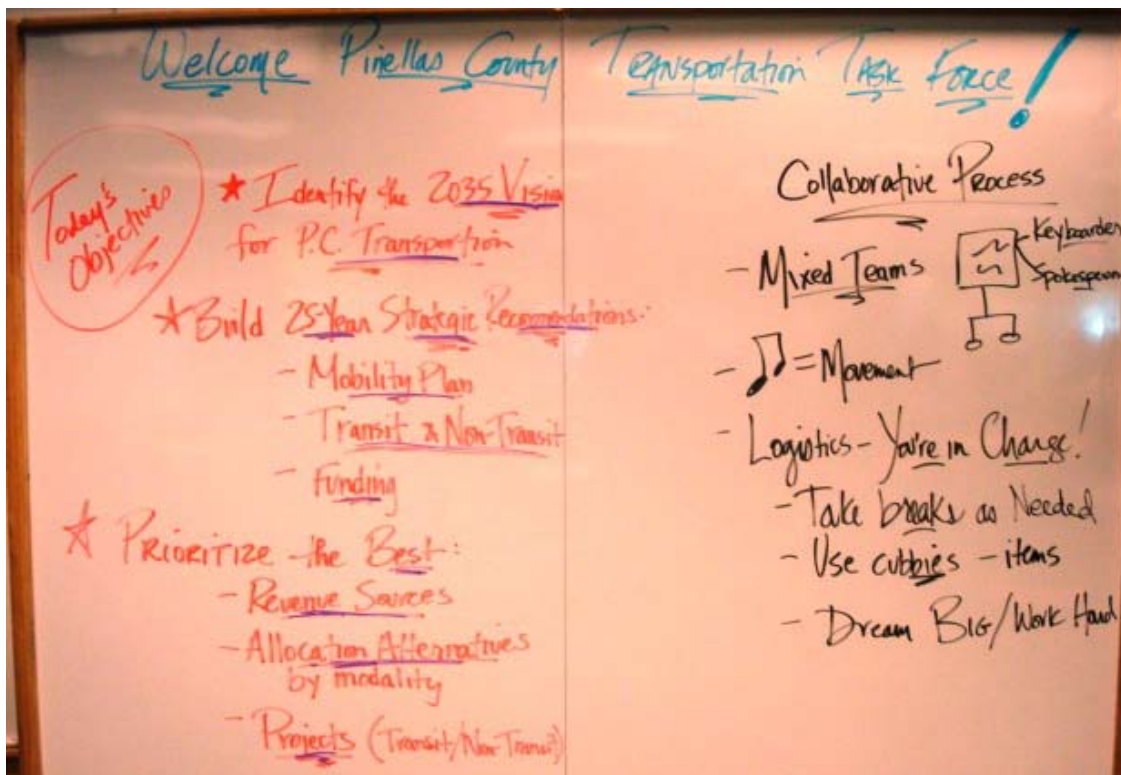 Welcome Pinellas County Transportation Task Force!
Today's
Objectives
★ Identify the 2035 Vision
for P.C. Transportion
★ Build 25-Year Strategic Recomendations:
- Mobility Plan
- Transit & Non-Transit
- Funding
★ Prioritize the Best:
- Revenue Sources
- Allocation Alternatives
by modality
- Projects (Transit/Non Transit)
Collaborative Process
- Mixed Teams
Keyboarder
Spokesperson
- ♫ = Movement
- Logistics - You're in Charge!
- Take breaks as Needed
- Use cubbies - items
- Dream BIG/Work Hard